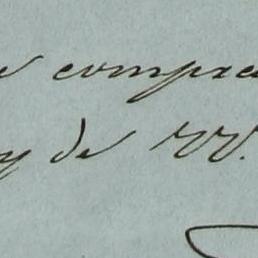 e compre
y de VV.